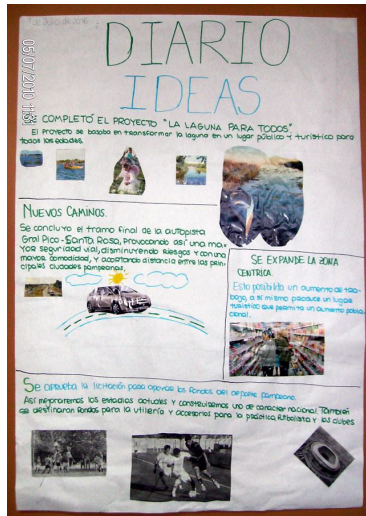 05/07/2010 11:31
DIARIO
IDEAS
SE COMPLETÓ EL PROYECTO "LA LAGUNA PARA TODOS"
El proyecto se basaba en transformar la laguna en un lugar público y turístico para
todas las edades.
NUEVOS CAMINOS.
Se concluyo el tramo final de la autopista
Gral Pico - Santa Rosa, provocando así una ma-
yor seguridad vial, disminuyendo riesgos y con una
mayor comodidad, y acortando distancia entre las prin-
cipales ciudades pampeanas.
SE EXPANDE LA ZONA
CENTRICA.
Esto posibilita un aumento de tra-
bajo, a si mismo produce un lugar
turístico que permita un aumento pobla-
cional.
Se aprueba la licitación para apoyar los fondos del deporte pampeano.
Así mejoraremos los estadios actuales y construiremos uno de caracter nacional. También
se destinaran fondos para la utilería y accesorios para la práctica futbolista y los clubes